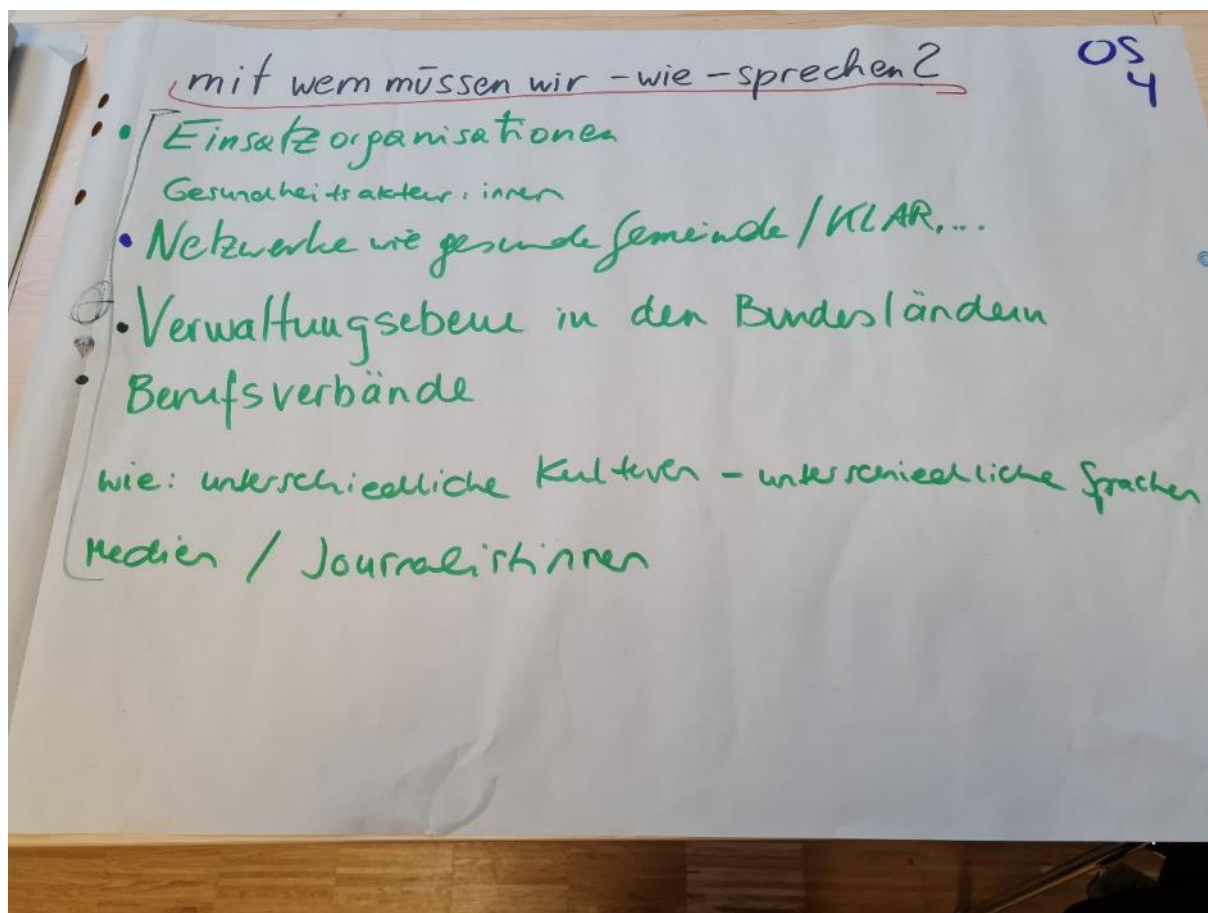 mit wem müssen wir - wie - sprechen?
OS
4
• Einsatzorganisationen
Gesundheitsakteur:innen
• Netzwerke wie gesunde Gemeinde / KLAR,...
• Verwaltungsebene in den Bundesländern
Berufsverbände
wie: unterschiedliche Kulturen - unterschiedliche Sprachen
Medien / Journalistinnen